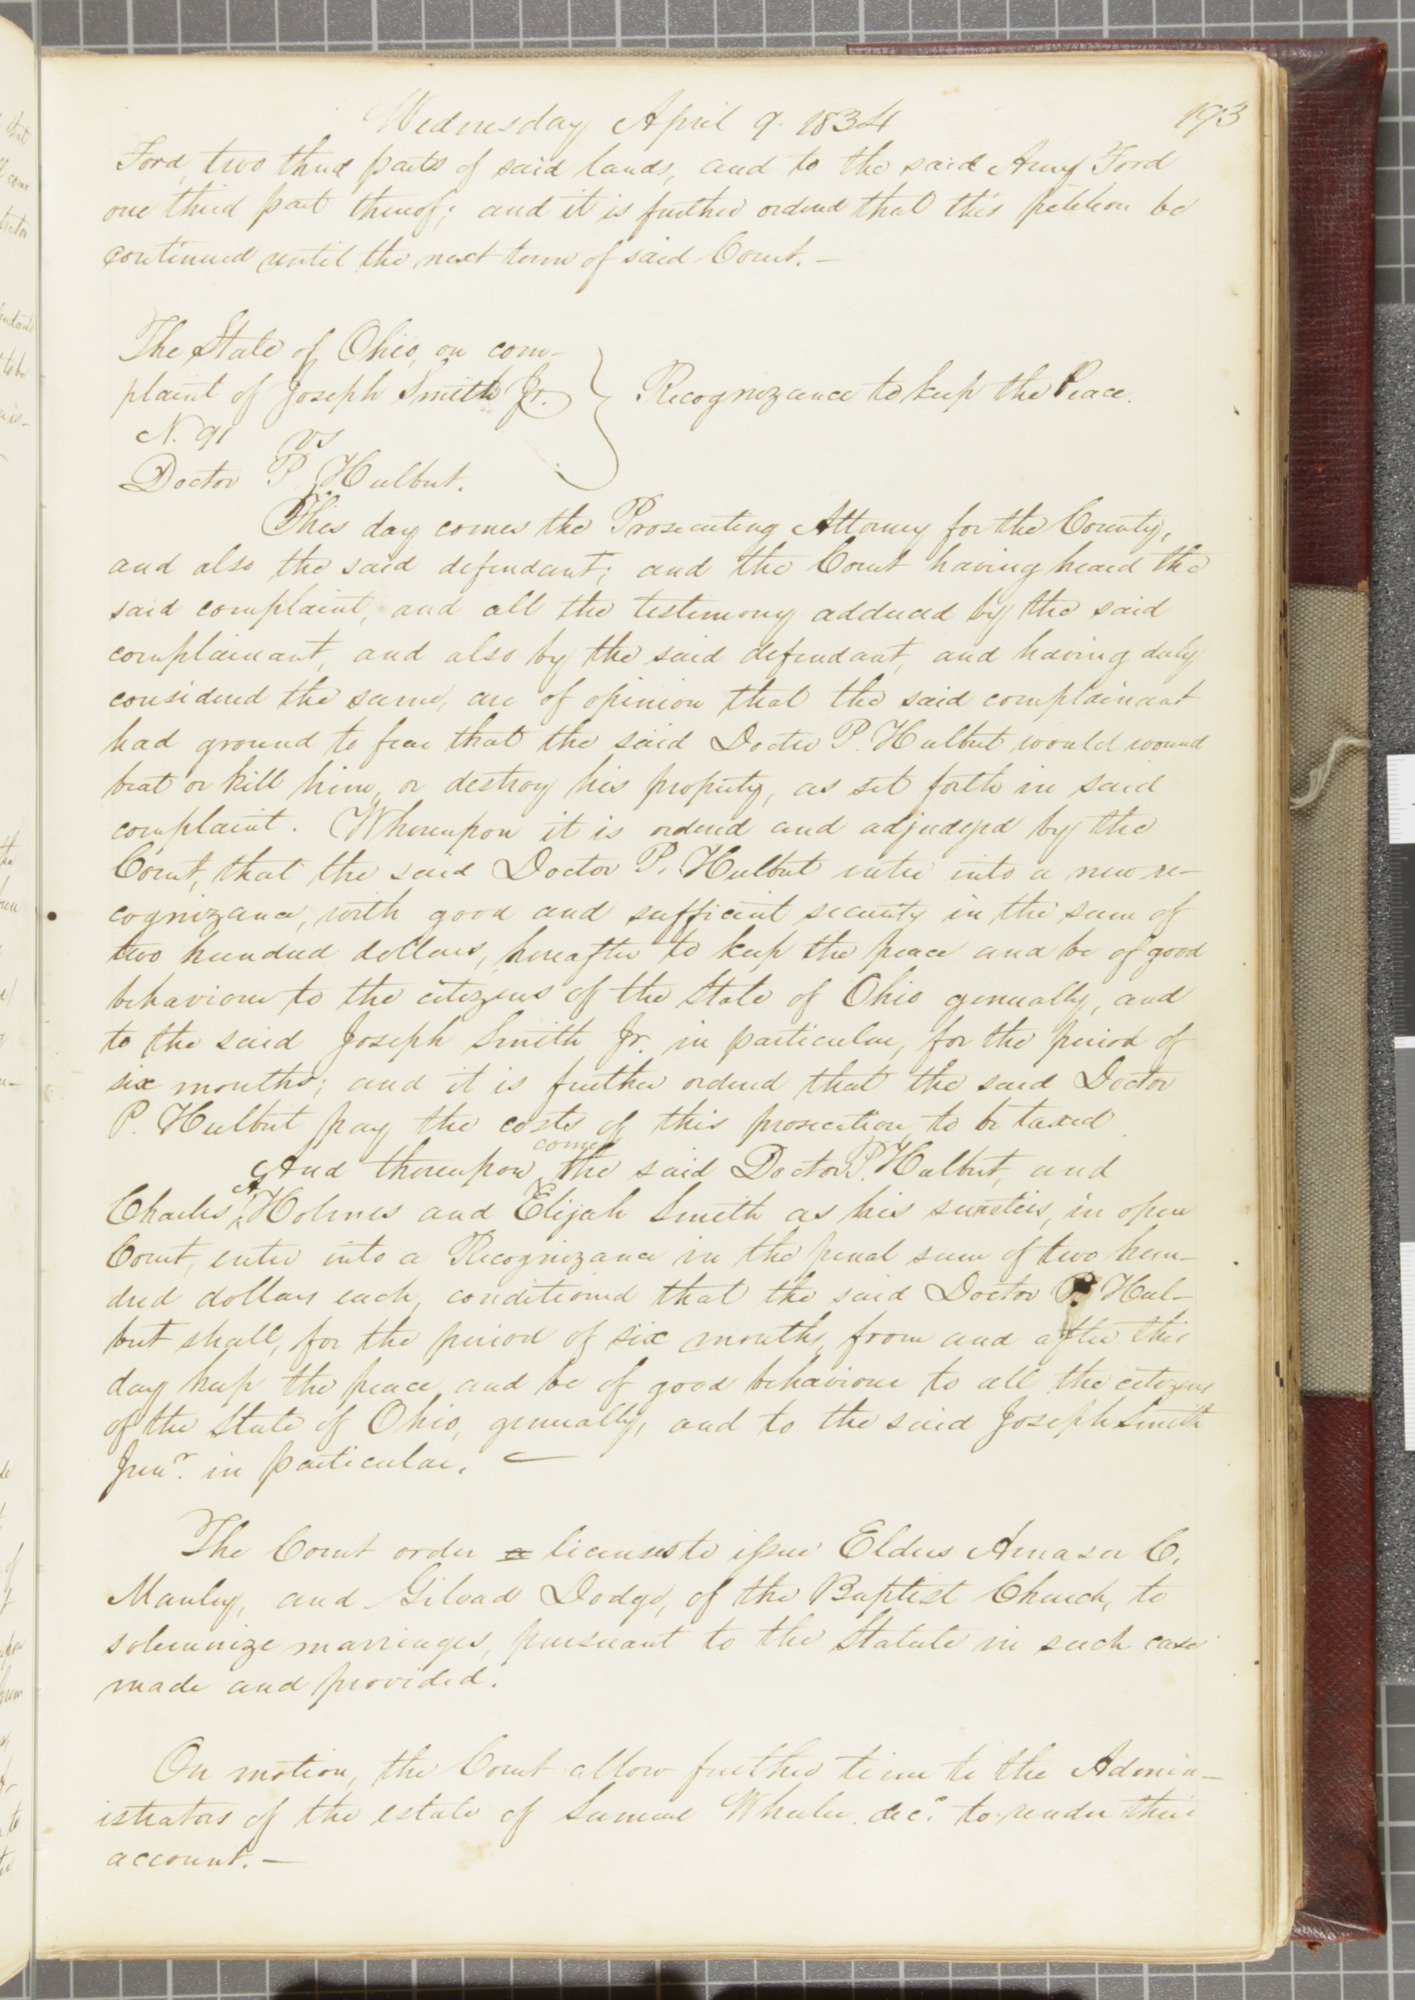 Wednesday April 9. 1834
193
Ford, two third parts of said lands, and to the said Amy Ford
one third part thereof; and it is further ordered that this petition be
continued until the next term of said Court. —
The State of Ohio, on com-
plaint of Joseph Smith Jr.
Recognizance to keep the Peace.
N. 91 vs
Doctor P. Hulbut.
This day comes the Prosecuting Attorney for the County,
and also the said defendant; and the Court having heard the
said complaint, and all the testimony adduced by the said
complainant, and also by the said defendant, and having duly
considered the same, are of opinion that the said complainant
had ground to fear that the said Doctor P. Hulbut would wound
beat or kill him, or destroy his property, as set forth in said
complaint. Whereupon it is ordered and adjudged by the
Court, that the said Doctor P. Hulbut enter into a new re-
cognizance, with good and sufficient security in the sum of
two hundred dollars, hereafter to keep the peace and be of good
behaviour to the citizens of the State of Ohio generally, and
to the said Joseph Smith Jr. in particular, for the period of
six months; and it is further ordered that the said Doctor
P. Hulbut pay the costs of this prosecution, to be taxed
And thereupon come the said Doctor P. Hulbut, and
Charles A. Holmes and Elijah Smith as his sureties, in open
Court, enter into a Recognizance in the penal sum of two hun-
dred dollars each, conditioned that the said Doctor P. Hul-
but shall, for the period of six months, from and after this
day keep the peace and be of good behaviour to all the citizens
of the State of Ohio, generally, and to the said Joseph Smith
Junr. in particular. —
The Court order a licenses to issue Elders Amasa C.
Manley, and Gilead Dodge, of the Baptist Church, to
solemnize marriages, pursuant to the Statute in such case
made and provided.
On motion, the Court allow further time to the Admin-
istrators of the estate of Samuel Wheeler decd. to render their
account. —